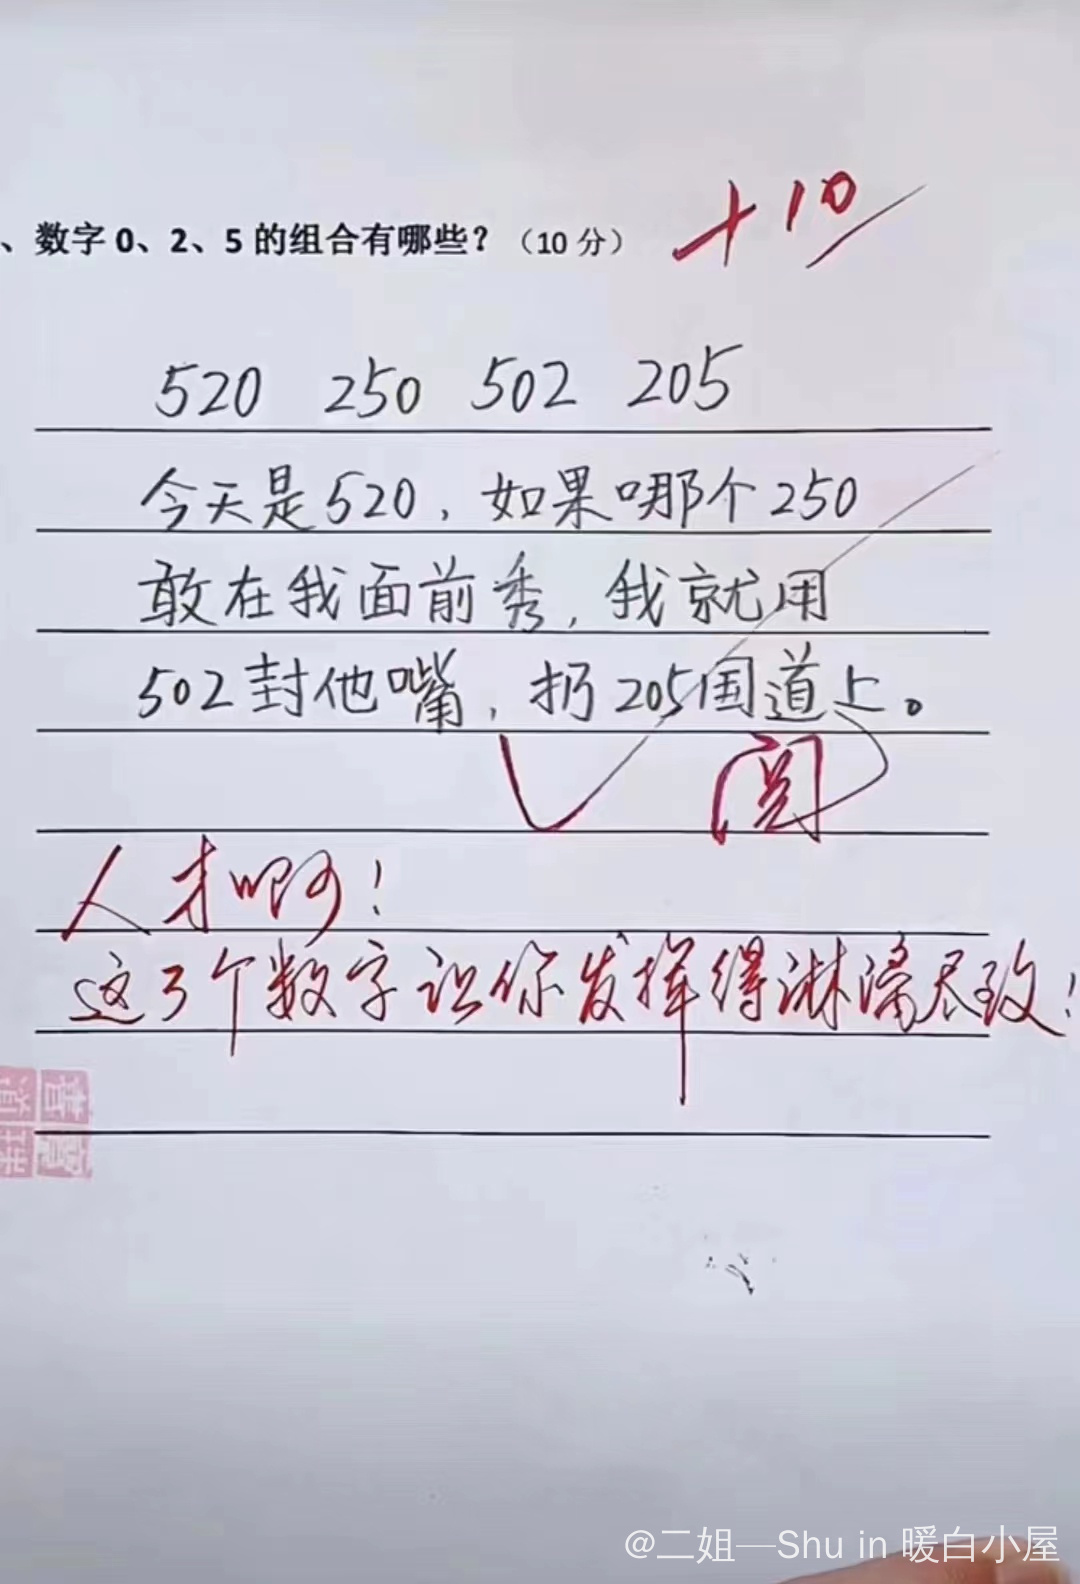 、数字0、2、5的组合有哪些？（10分）
+10
520 250 502 205
今天是520，如果哪个250
敢在我面前秀，我就用
502封他嘴，扔205国道上。
阅
人才啊！
这3个数字让你发挥得淋漓尽致！
@二姐—Shu in 暖白小屋